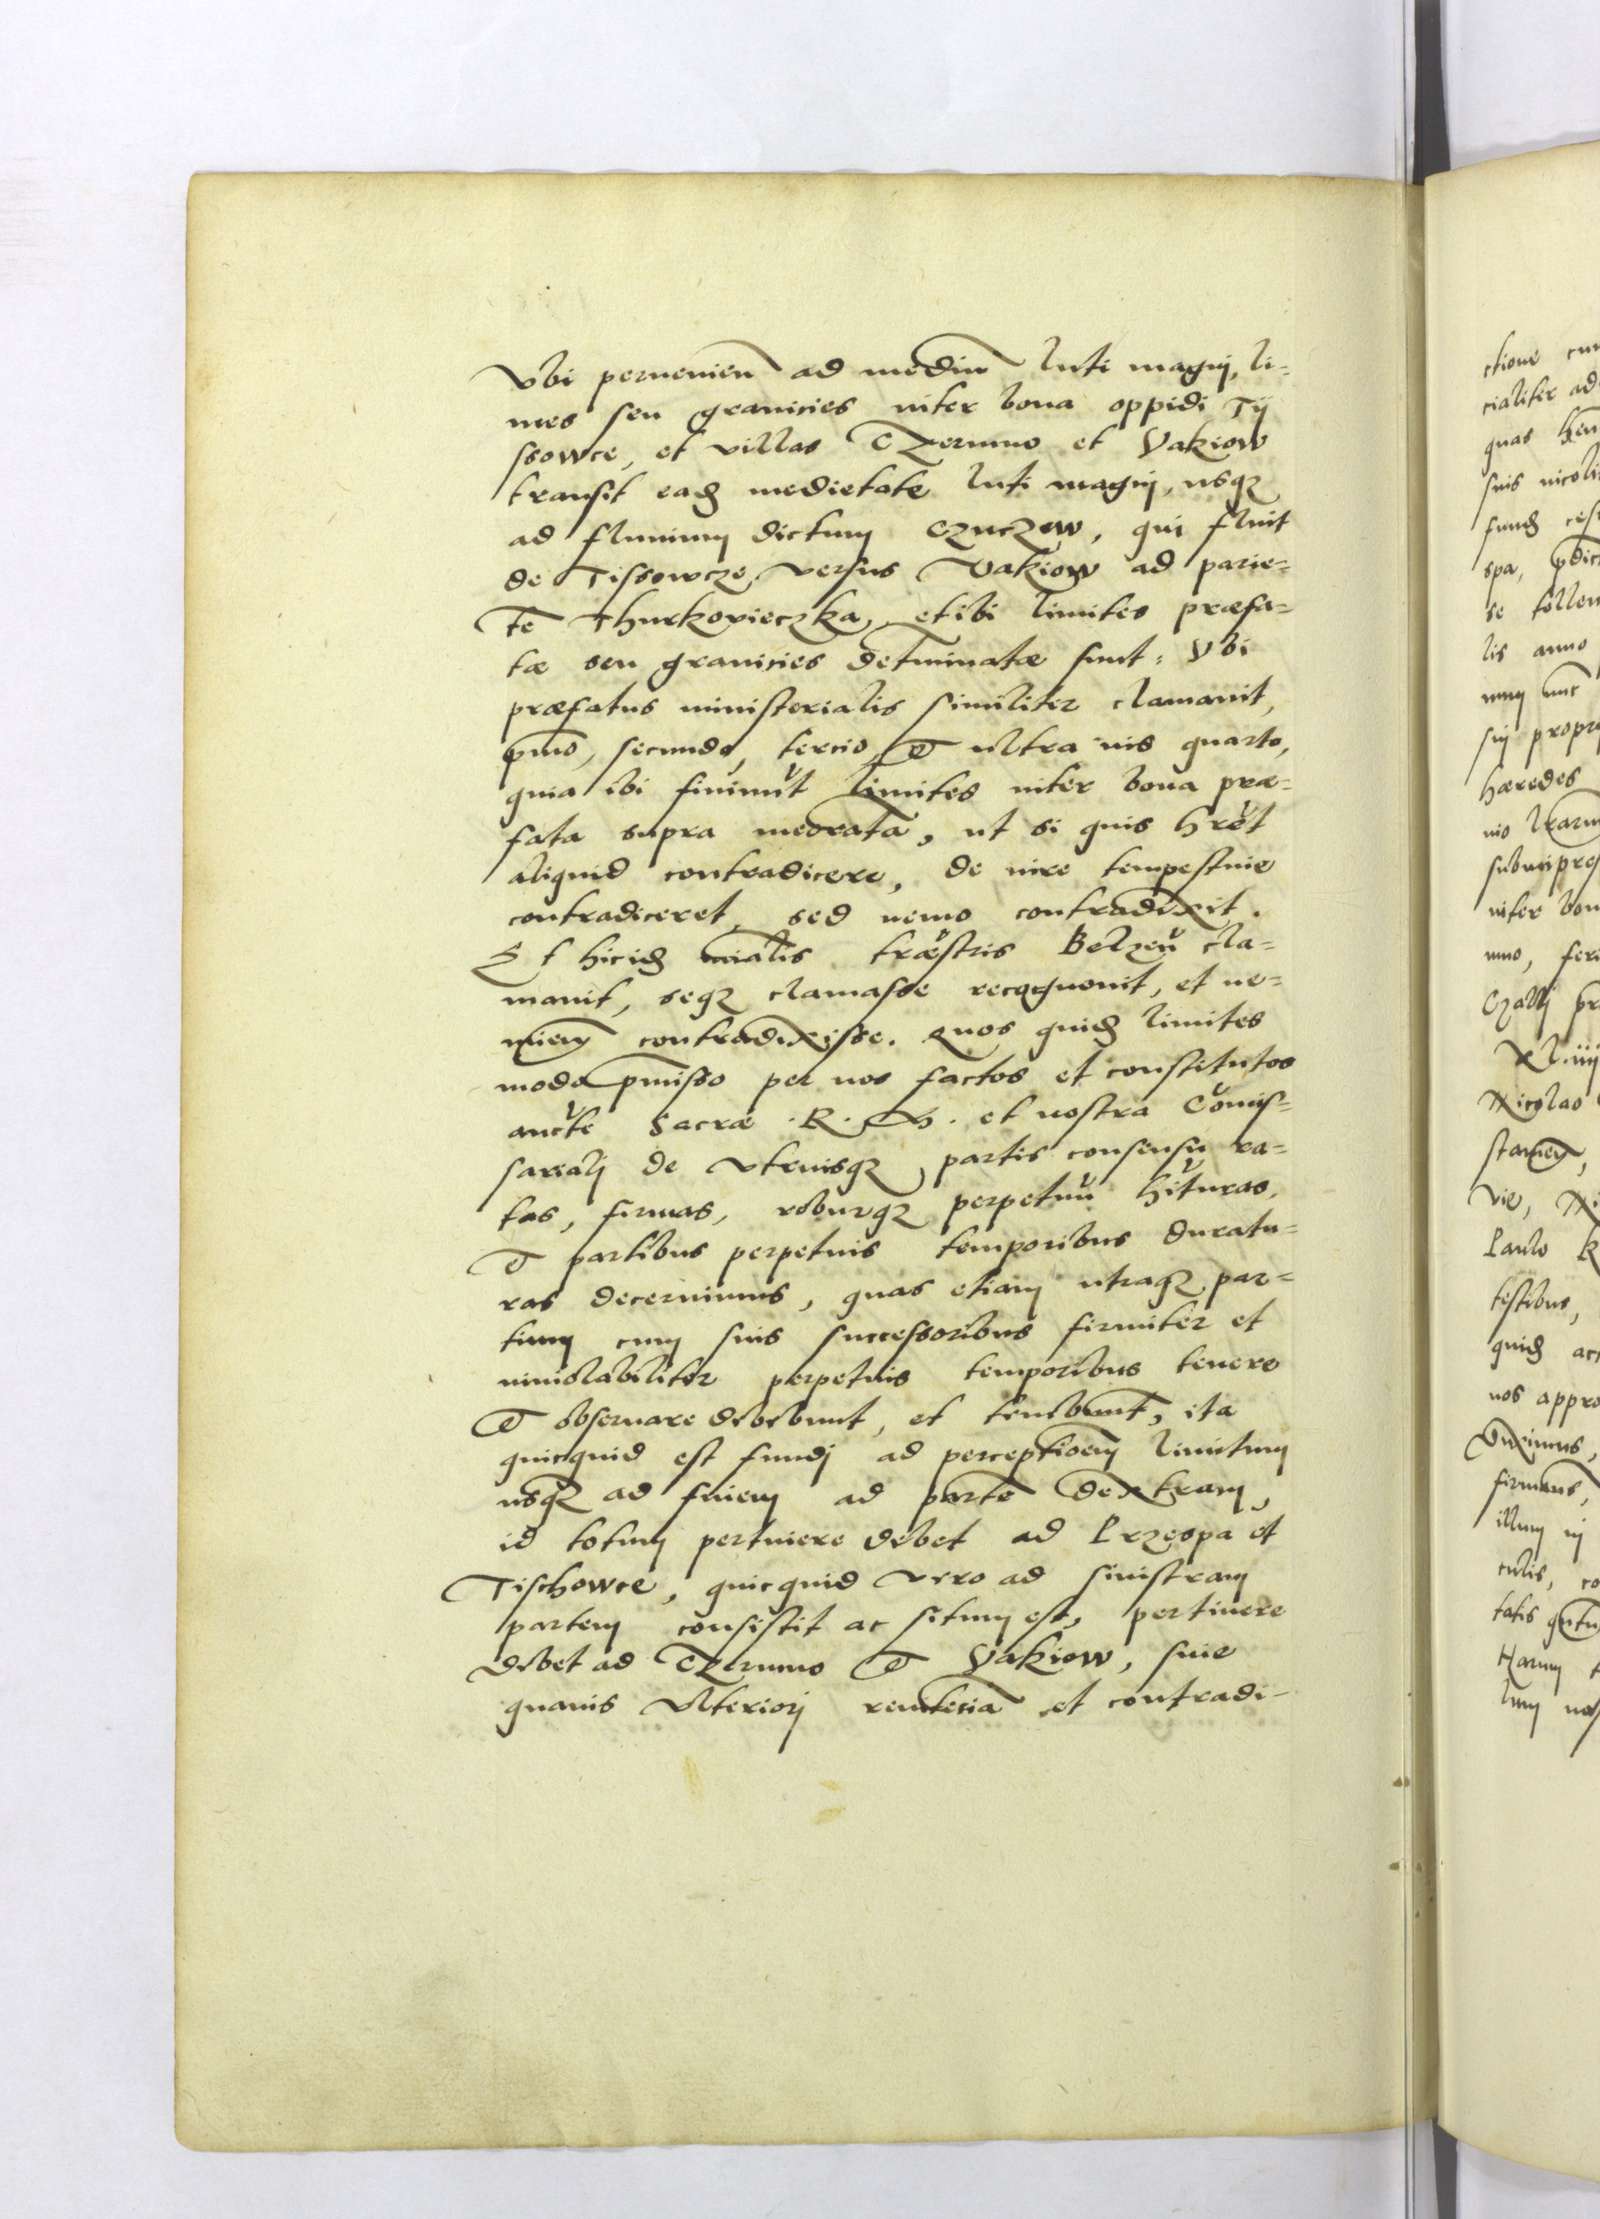 Vbi peruenien ad mediu luti magnj, li-
mes seu granicies inter bona oppidi Tÿ
ssowce, et villas Czermno et Vakiow
transit eadē medietate luti magnj, usq
ad fluuium dictum Czuczow, qui fluit
de Tissowcze, versus Vakiow ad parie-
tē Thurkowieczka, et ibi limites præfa-
tæ seu granicies detminatæ sunt: Vbi
præfatus ministerialis similiter clamauit,
pmo, secundo, tercio, & ultra vis quarto,
quia ibi finiunt limites inter bona præ-
fata supra meorata, ut si quis hret
aliquid contradicere, de iure tempestiue
contradiceret, sed nemo contradixit.
Et hic idē mialis træstris Belzen cla-
mauit, seq clamasse recognouit, et ne-
minem contradixisse. Quos quidē limites
modo pmisso per nos factos et constitutos
aucte Sacræ .R. M. et nostra Comis-
sariali de utriusq partis consensu ra-
tas, firmas, roburq perpetuu hituras,
& partibus perpetuis temporibus duratu-
ras decernimus, quas etiam utraq par-
tium cum suis successoribus firmiter et
inuiolabiliter perpetuis temporibus tenere
& obseruare debebunt, et tenebunt, ita
quicquid est fundj ad perceptioem limitum
usq ad finem ad parte dextram,
id totum pertinere debet ad Przespa et
Tischowce, quicquid vero ad sinistram
partem consistit ac situm est, pertinere
debet ad Czermno & Vakiow, sine
quauis vlteriorj renitecia et contradi-
ctione cu
cialiter ad
quas
suis
fundē
spa, pdic
se tollen
lis anno
num
sij propri
hæredes
nio
inter bon
mo, feri
pr
Xliiij
Nicolao
vie, Ni
Paulo R
testibus,
quidē ac
nos appro
Duximus,
firmans,
illum in
culis, co
tatis
Harum t